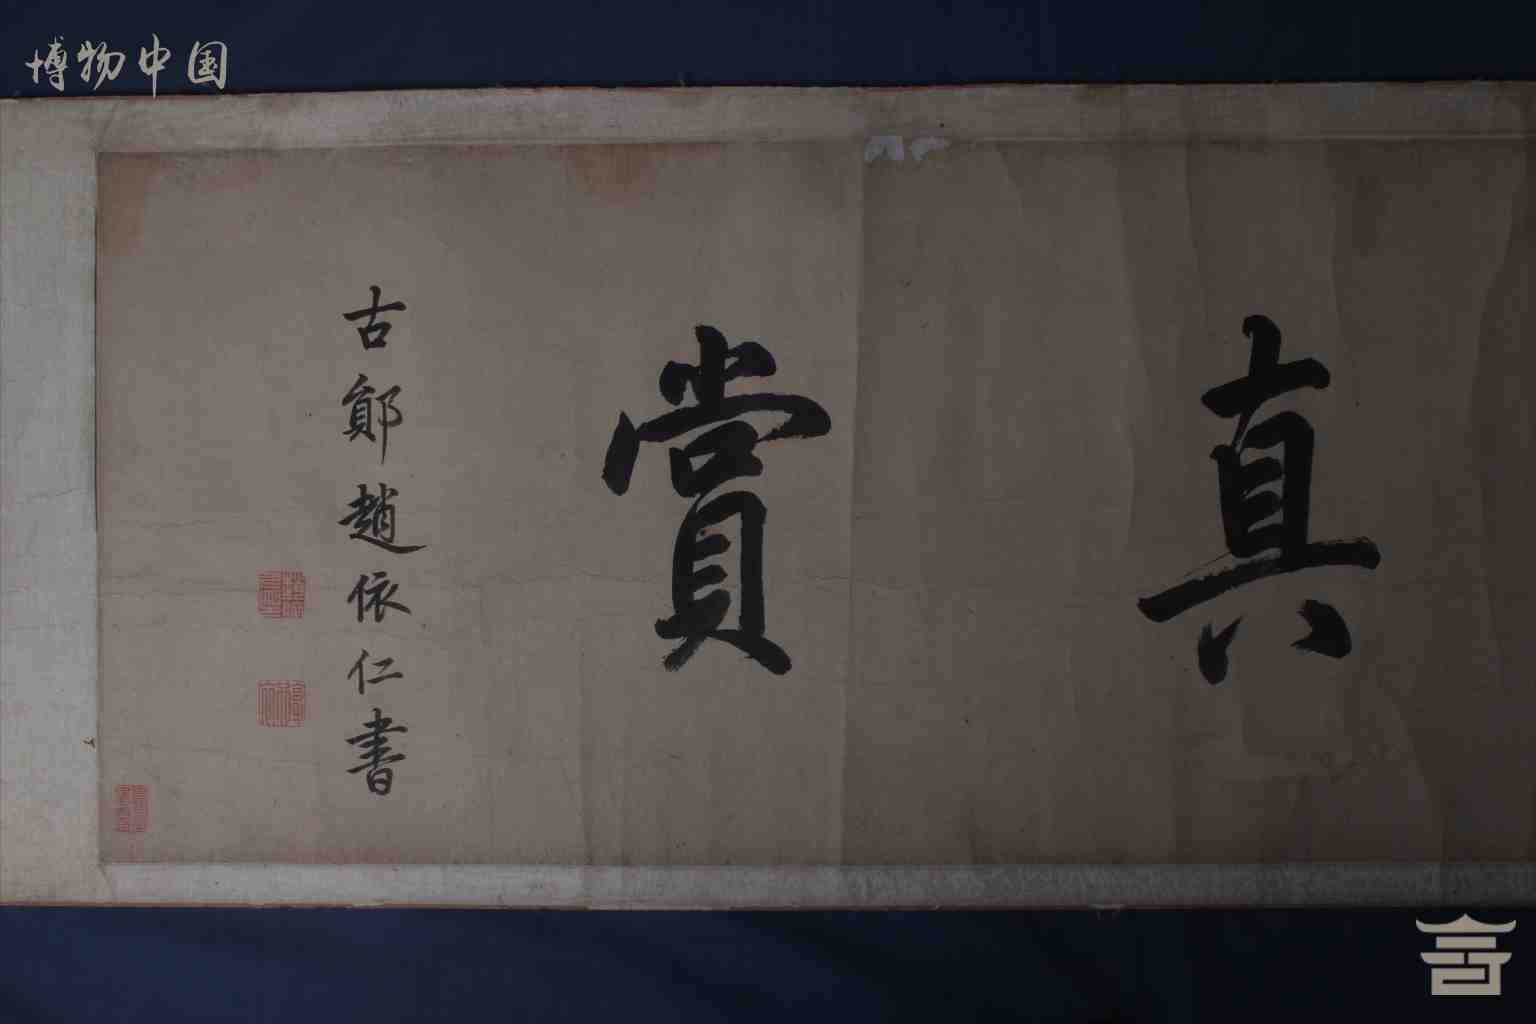 博物中国
真賞
古鄮趙依仁書